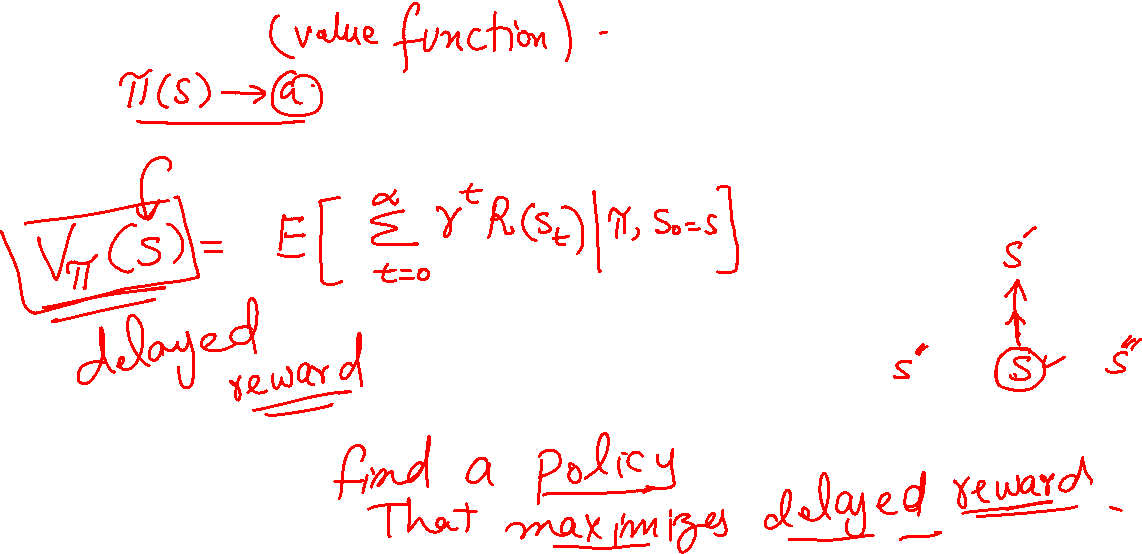 (value function) .
π(s) → a
V_π(s) = E[ ∑_{t=0}^{∝} γ^t R(s_t) | π, s_0=s ]
delayed
reward
s′
s″ s s‴
find a policy
That maximizes delayed reward .